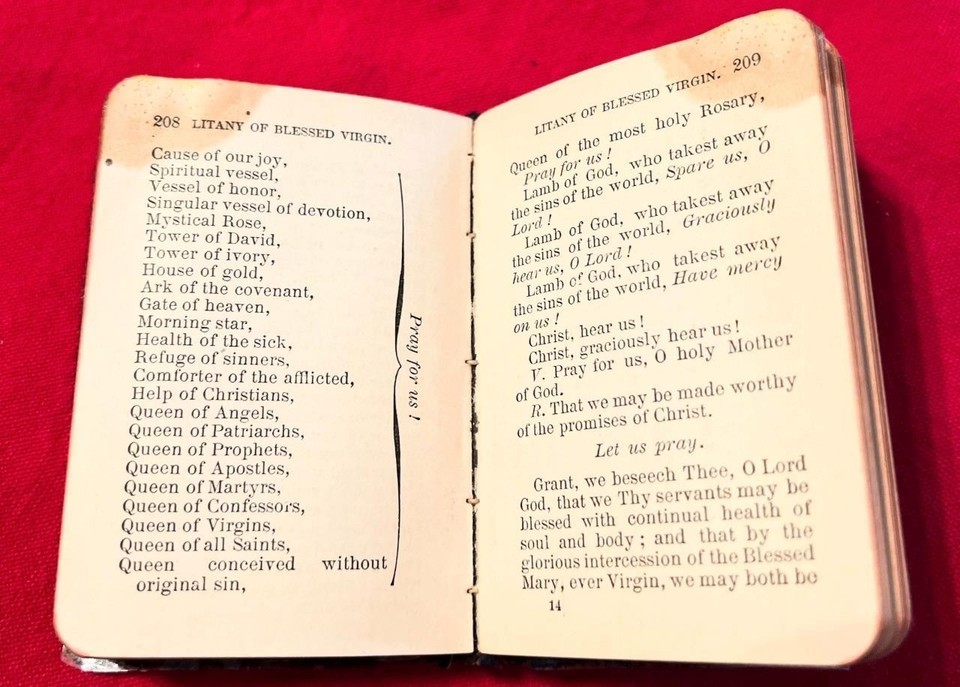 208 LITANY OF BLESSED VIRGIN.
Cause of our joy,
Spiritual vessel,
Vessel of honor,
Singular vessel of devotion,
Mystical Rose,
Tower of David,
Tower of ivory,
House of gold,
Ark of the covenant,
Gate of heaven,
Morning star,
Health of the sick,
Refuge of sinners,
Comforter of the afflicted,
Help of Christians,
Queen of Angels,
Queen of Patriarchs,
Queen of Prophets,
Queen of Apostles,
Queen of Martyrs,
Queen of Confessors,
Queen of Virgins,
Queen of all Saints,
Queen conceived without
original sin,
Pray for us !
LITANY OF BLESSED VIRGIN. 209
Queen of the most holy Rosary,
Pray for us !
Lamb of God, who takest away
the sins of the world, Spare us, O
Lord !
Lamb of God, who takest away
the sins of the world, Graciously
hear us, O Lord !
Lamb of God, who takest away
the sins of the world, Have mercy
on us !
Christ, hear us !
Christ, graciously hear us !
V. Pray for us, O holy Mother
of God.
R. That we may be made worthy
of the promises of Christ.
Let us pray.
Grant, we beseech Thee, O Lord
God, that we Thy servants may be
blessed with continual health of
soul and body ; and that by the
glorious intercession of the Blessed
Mary, ever Virgin, we may both be
14